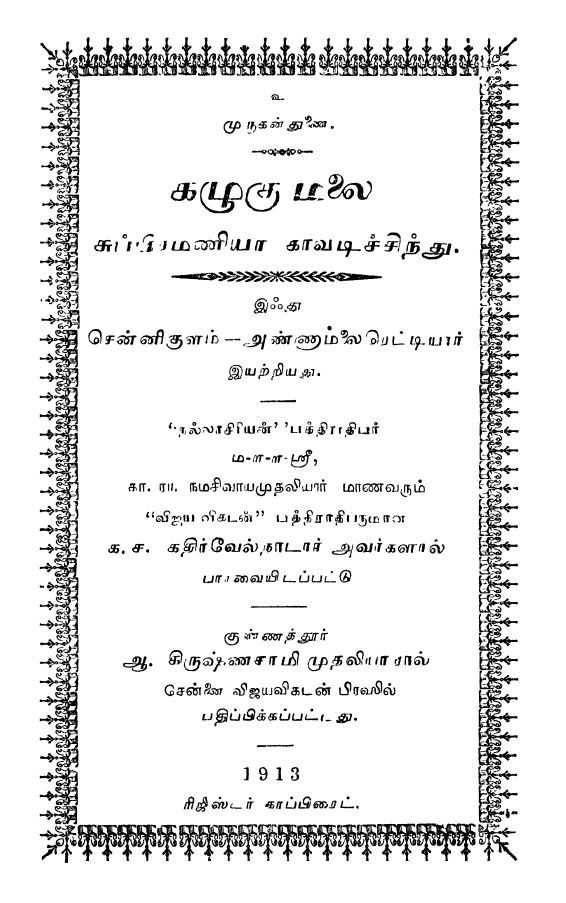 உ
முருகன் துணை.
கழுகு மலை
சுப்பிரமணியர் காவடிச்சிந்து.
இஃது
சென்னிகுளம்—அண்ணாமலை ரெட்டியார்
இயற்றியது.
"நல்லாசிரியன்" பத்திராதிபர்
ம-ா-ா-ஸ்ரீ,
கா. ரா. நமசிவாயமுதலியார் மாணவரும்
"விஜய விகடன்" பத்திராதிபருமான
க. ச. கதிர்வேல்நாடார் அவர்களால்
பார்வையிடப்பட்டு
குண்ணத்தூர்
ஆ. கிருஷ்ணசாமி முதலியாரால்
சென்னை விஜயவிகடன் பிரஸில்
பதிப்பிக்கப்பட்டது.
1913
ரிஜிஸ்டர் காப்பிரைட்.